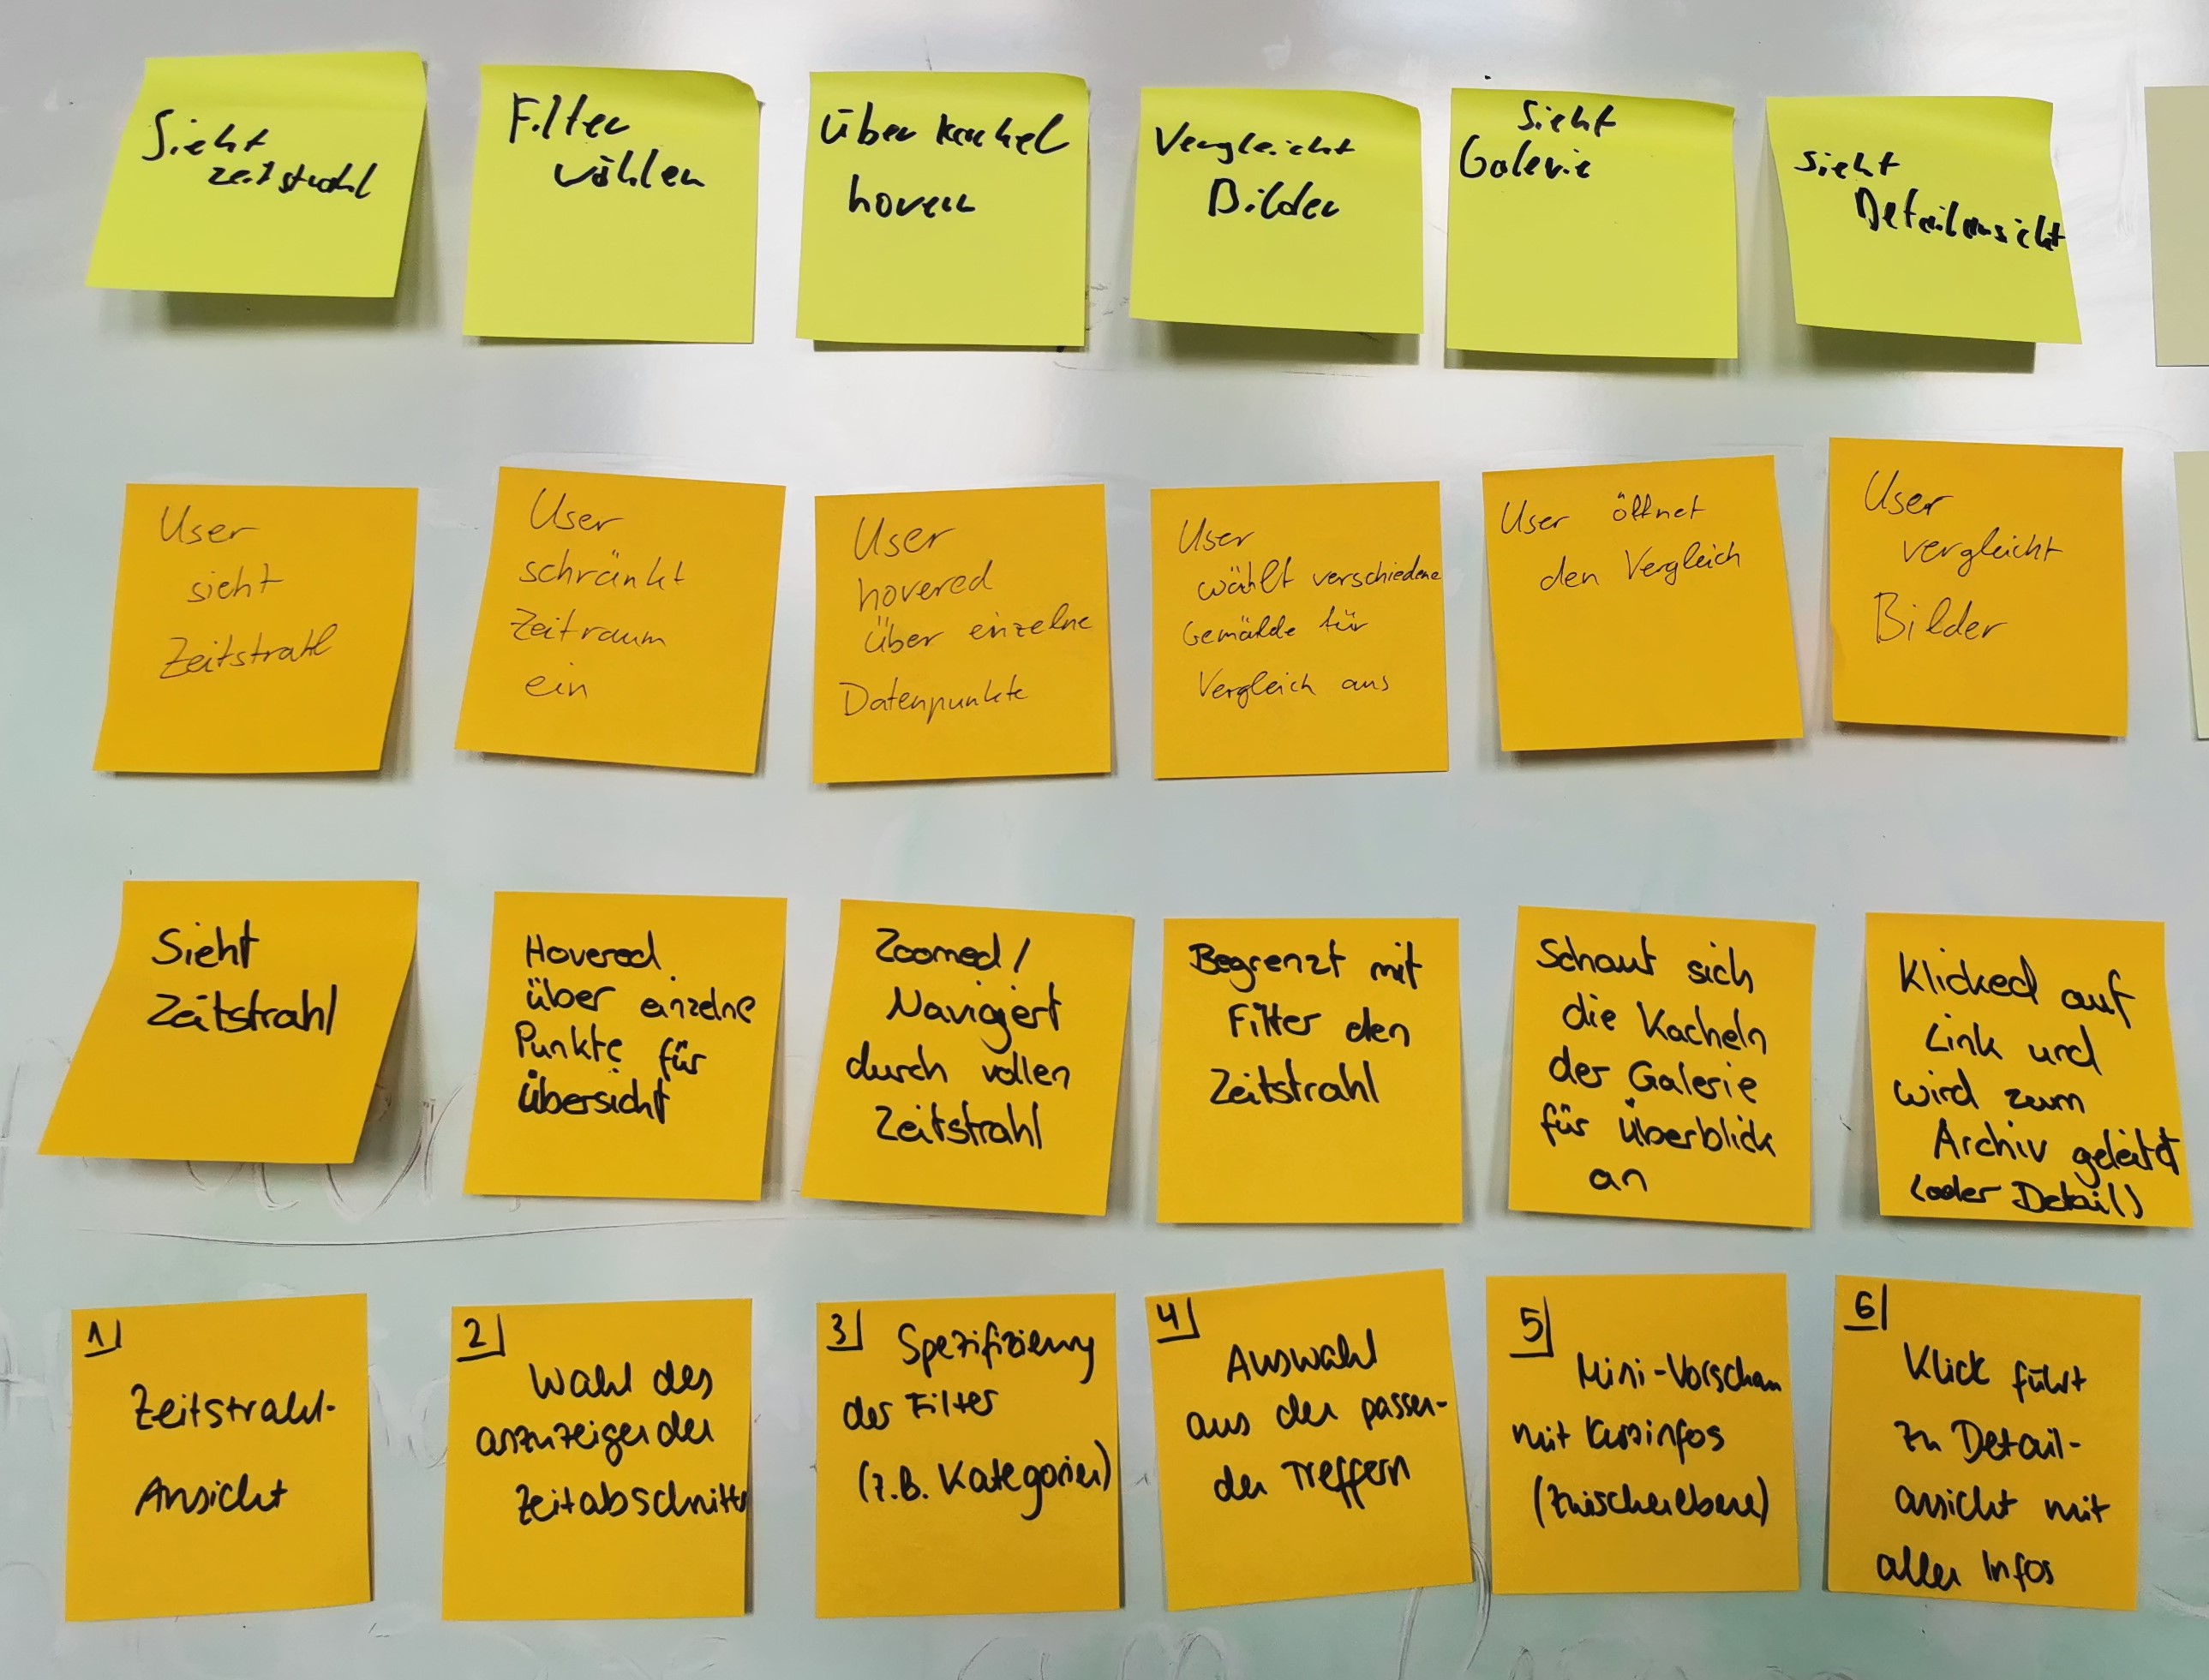 Sieht
Zeitstrahl
Filter
wählen
über kachel
hovern
Vergleicht
Bilder
Sieht
Galerie
sieht
Detailansicht
User
sieht
Zeitstrahl
User
schränkt
Zeitraum
ein
User
hovered
über einzelne
Datenpunkte
User
wählt verschiedene
Gemälde für
Vergleich aus
User öffnet
den Vergleich
User
vergleicht
Bilder
Sieht
Zeitstrahl
Hovered
über einzelne
Punkte für
Übersicht
Zoomed /
Navigiert
durch vollen
Zeitstrahl
Begrenzt mit
Filter den
Zeitstrahl
Schaut sich
die Kacheln
der Galerie
für Überblick
an
Klicked auf
Link und
wird zum
Archiv geleitet
(oder Detail)
1
Zeitstrahl-
Ansicht
2
Wahl des
anzuzeigenden
Zeitabschnitts
3 Spezifizierung
der Filter
(z.B. Kategorien)
4
Auswahl
aus den passen-
den Treffern
5
Mini-Vorschau
mit Kurzinfos
(Zwischenebene)
6
Klick führt
zu Detail-
ansicht mit
allen Infos